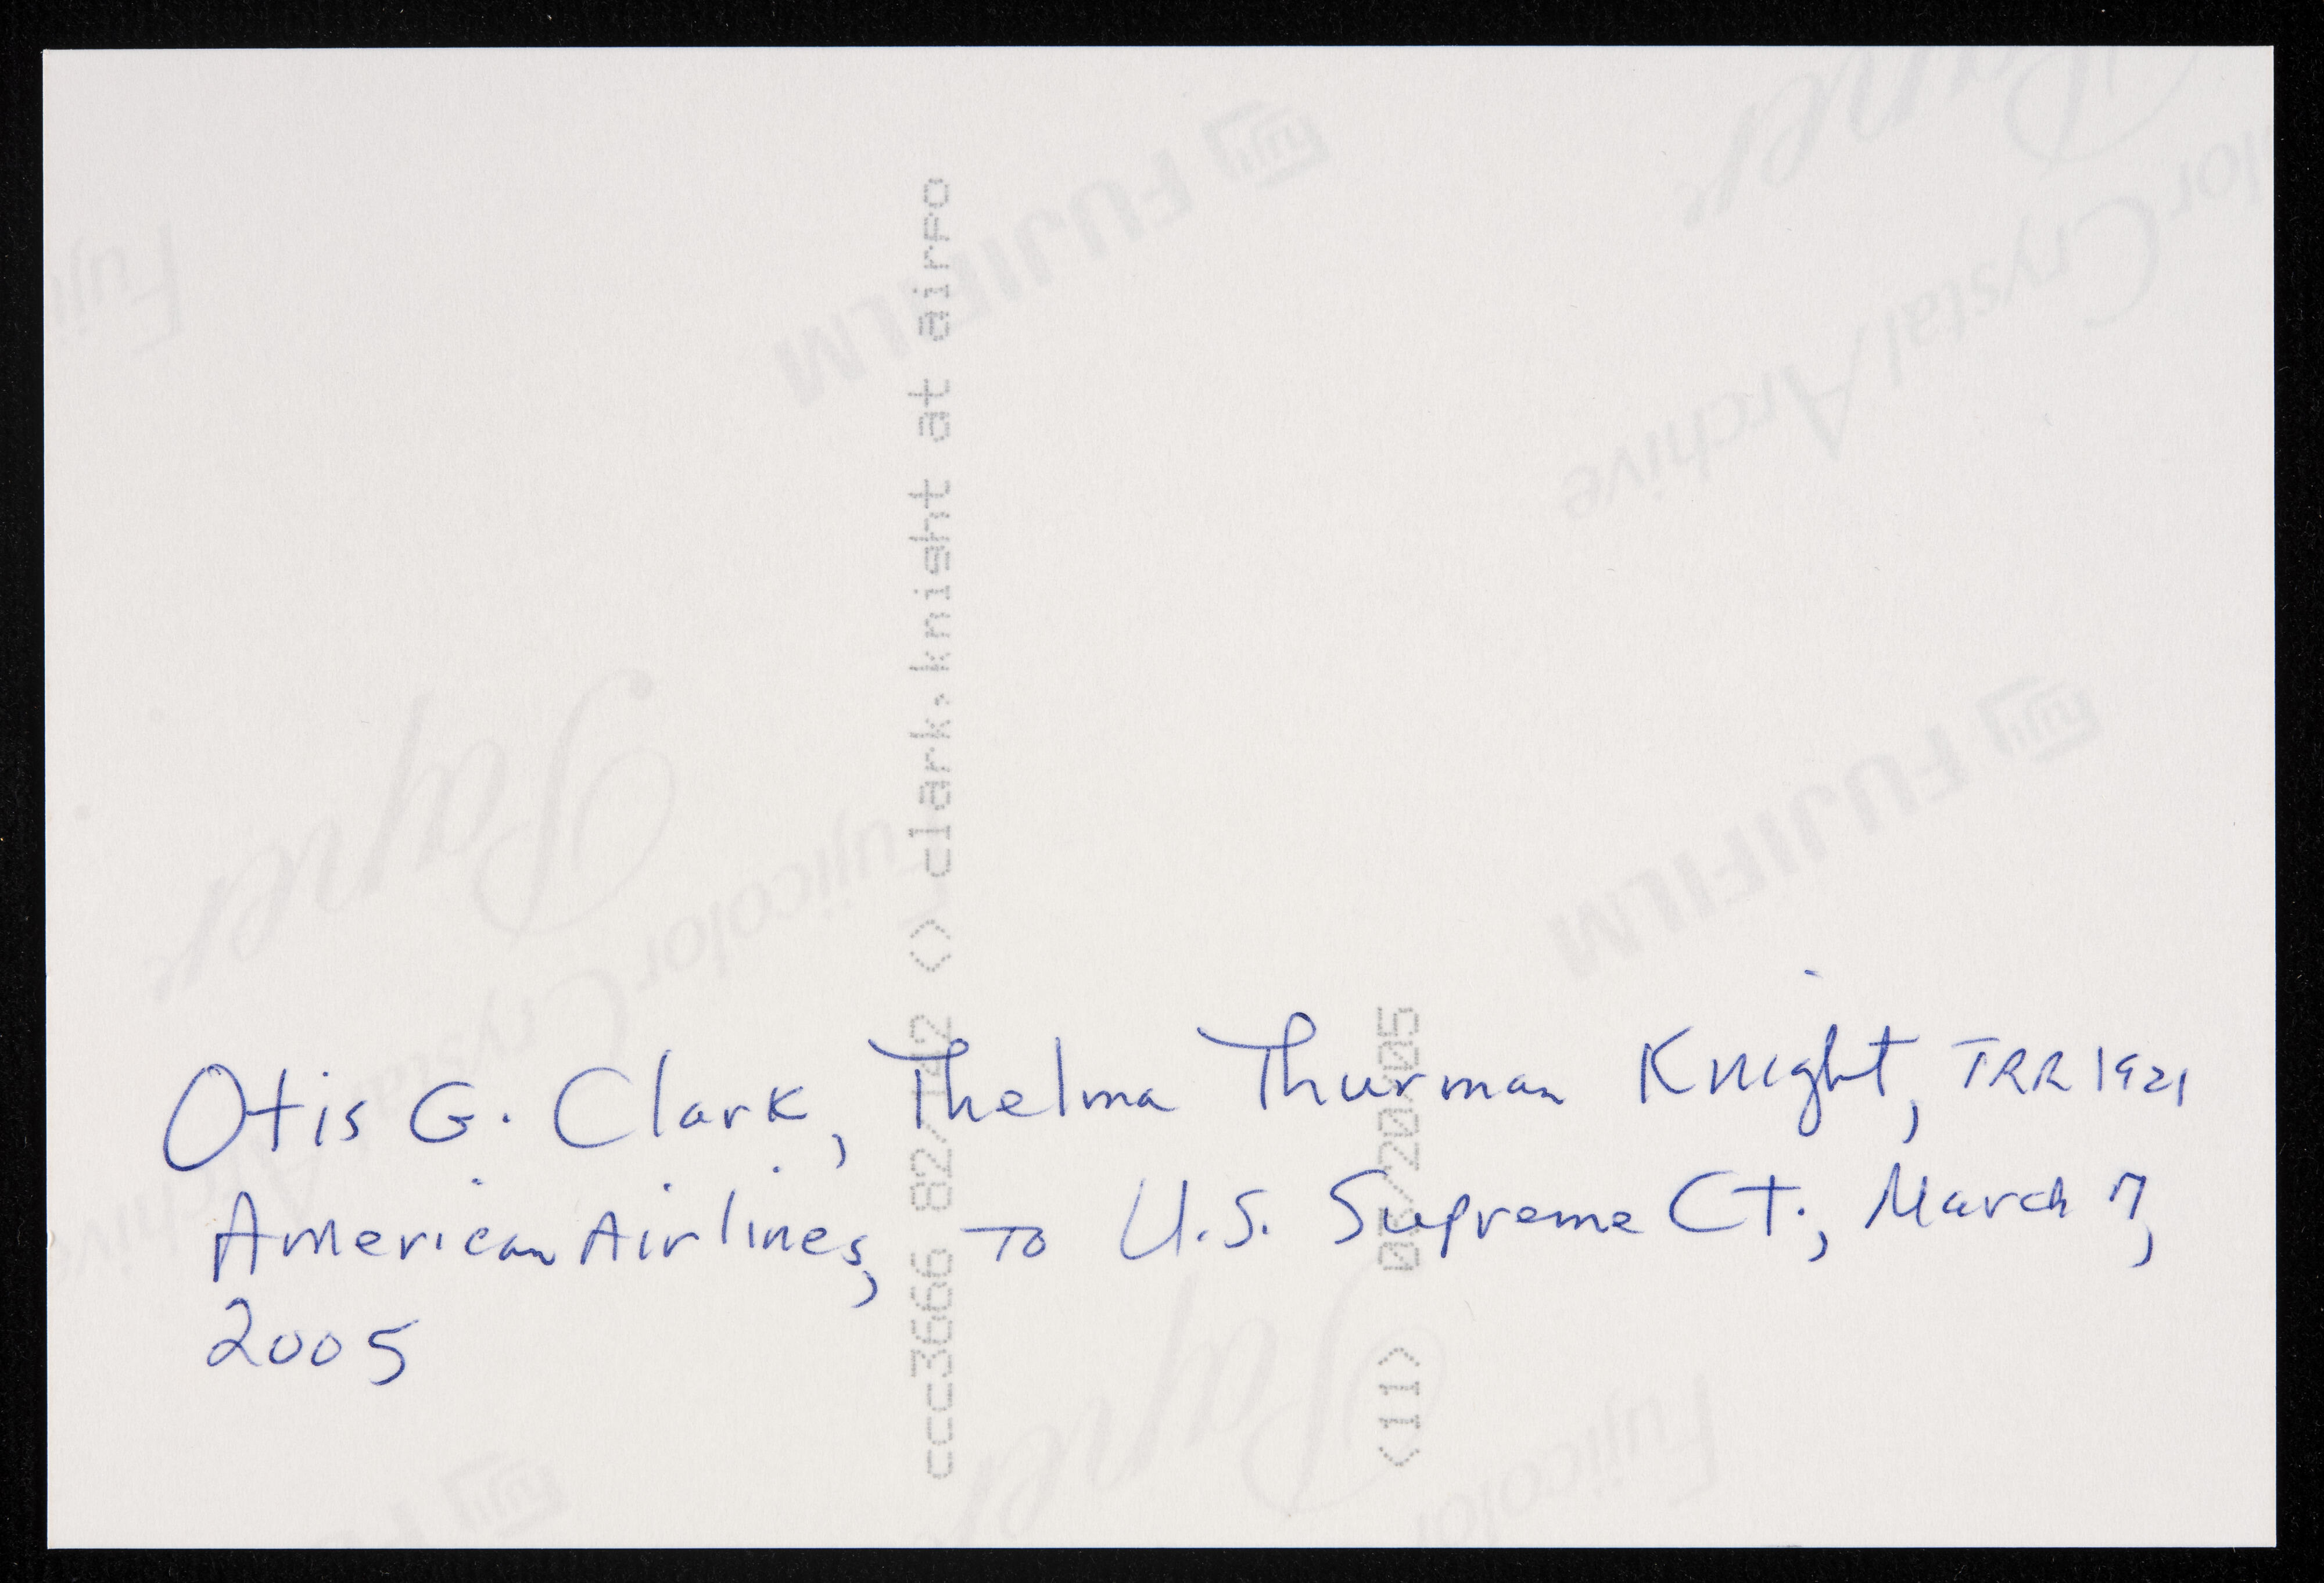 Otis G. Clark, Thelma Thurman Knight, TRR 1921
American Airlines, To U.S. Supreme Ct., March 7,
2005
ccc3666 82/142 <> clark,knight at airpo
<11> 05/20/05
FUJIFILM
Fujicolor Crystal Archive
Paper
FUJIFILM
Crystal Archive
Paper
Fujicolor